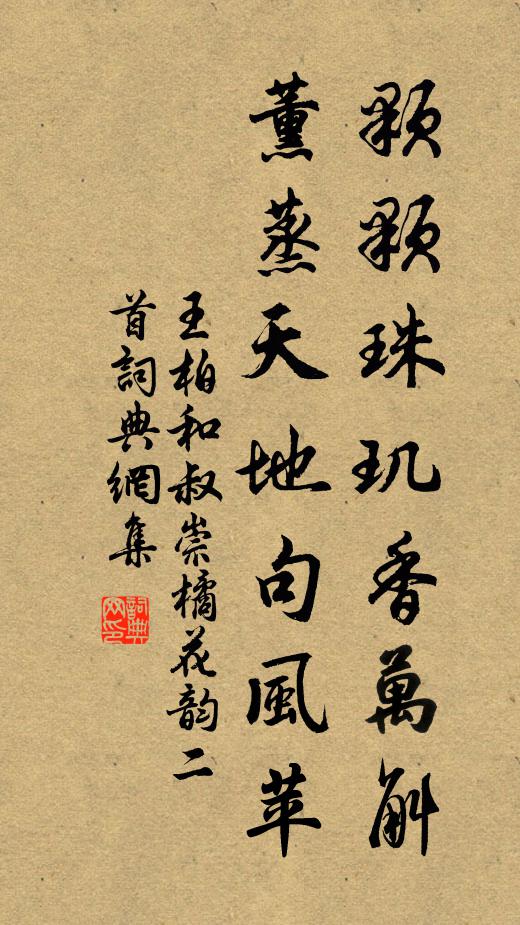 顆顆珠玑香萬斛
薰蒸天地句風苹
王柏和叔崇橘花韵二
首詞典網集
詞典
网印